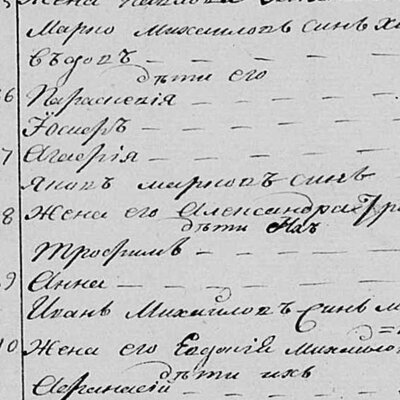 жена
Марко Михаиловъ синъ
въдовъ
дѣти его
6 Параскевiя
Iосифъ
7 Агафiя
Яковъ марковъ синъ
8 Жена его Александра
дѣти ихъ
Трофимъ
9 Анна
Иванъ Михайловъ Синъ
10 Жена его Евдокiя михайло
дѣти ихъ
Афанасiй